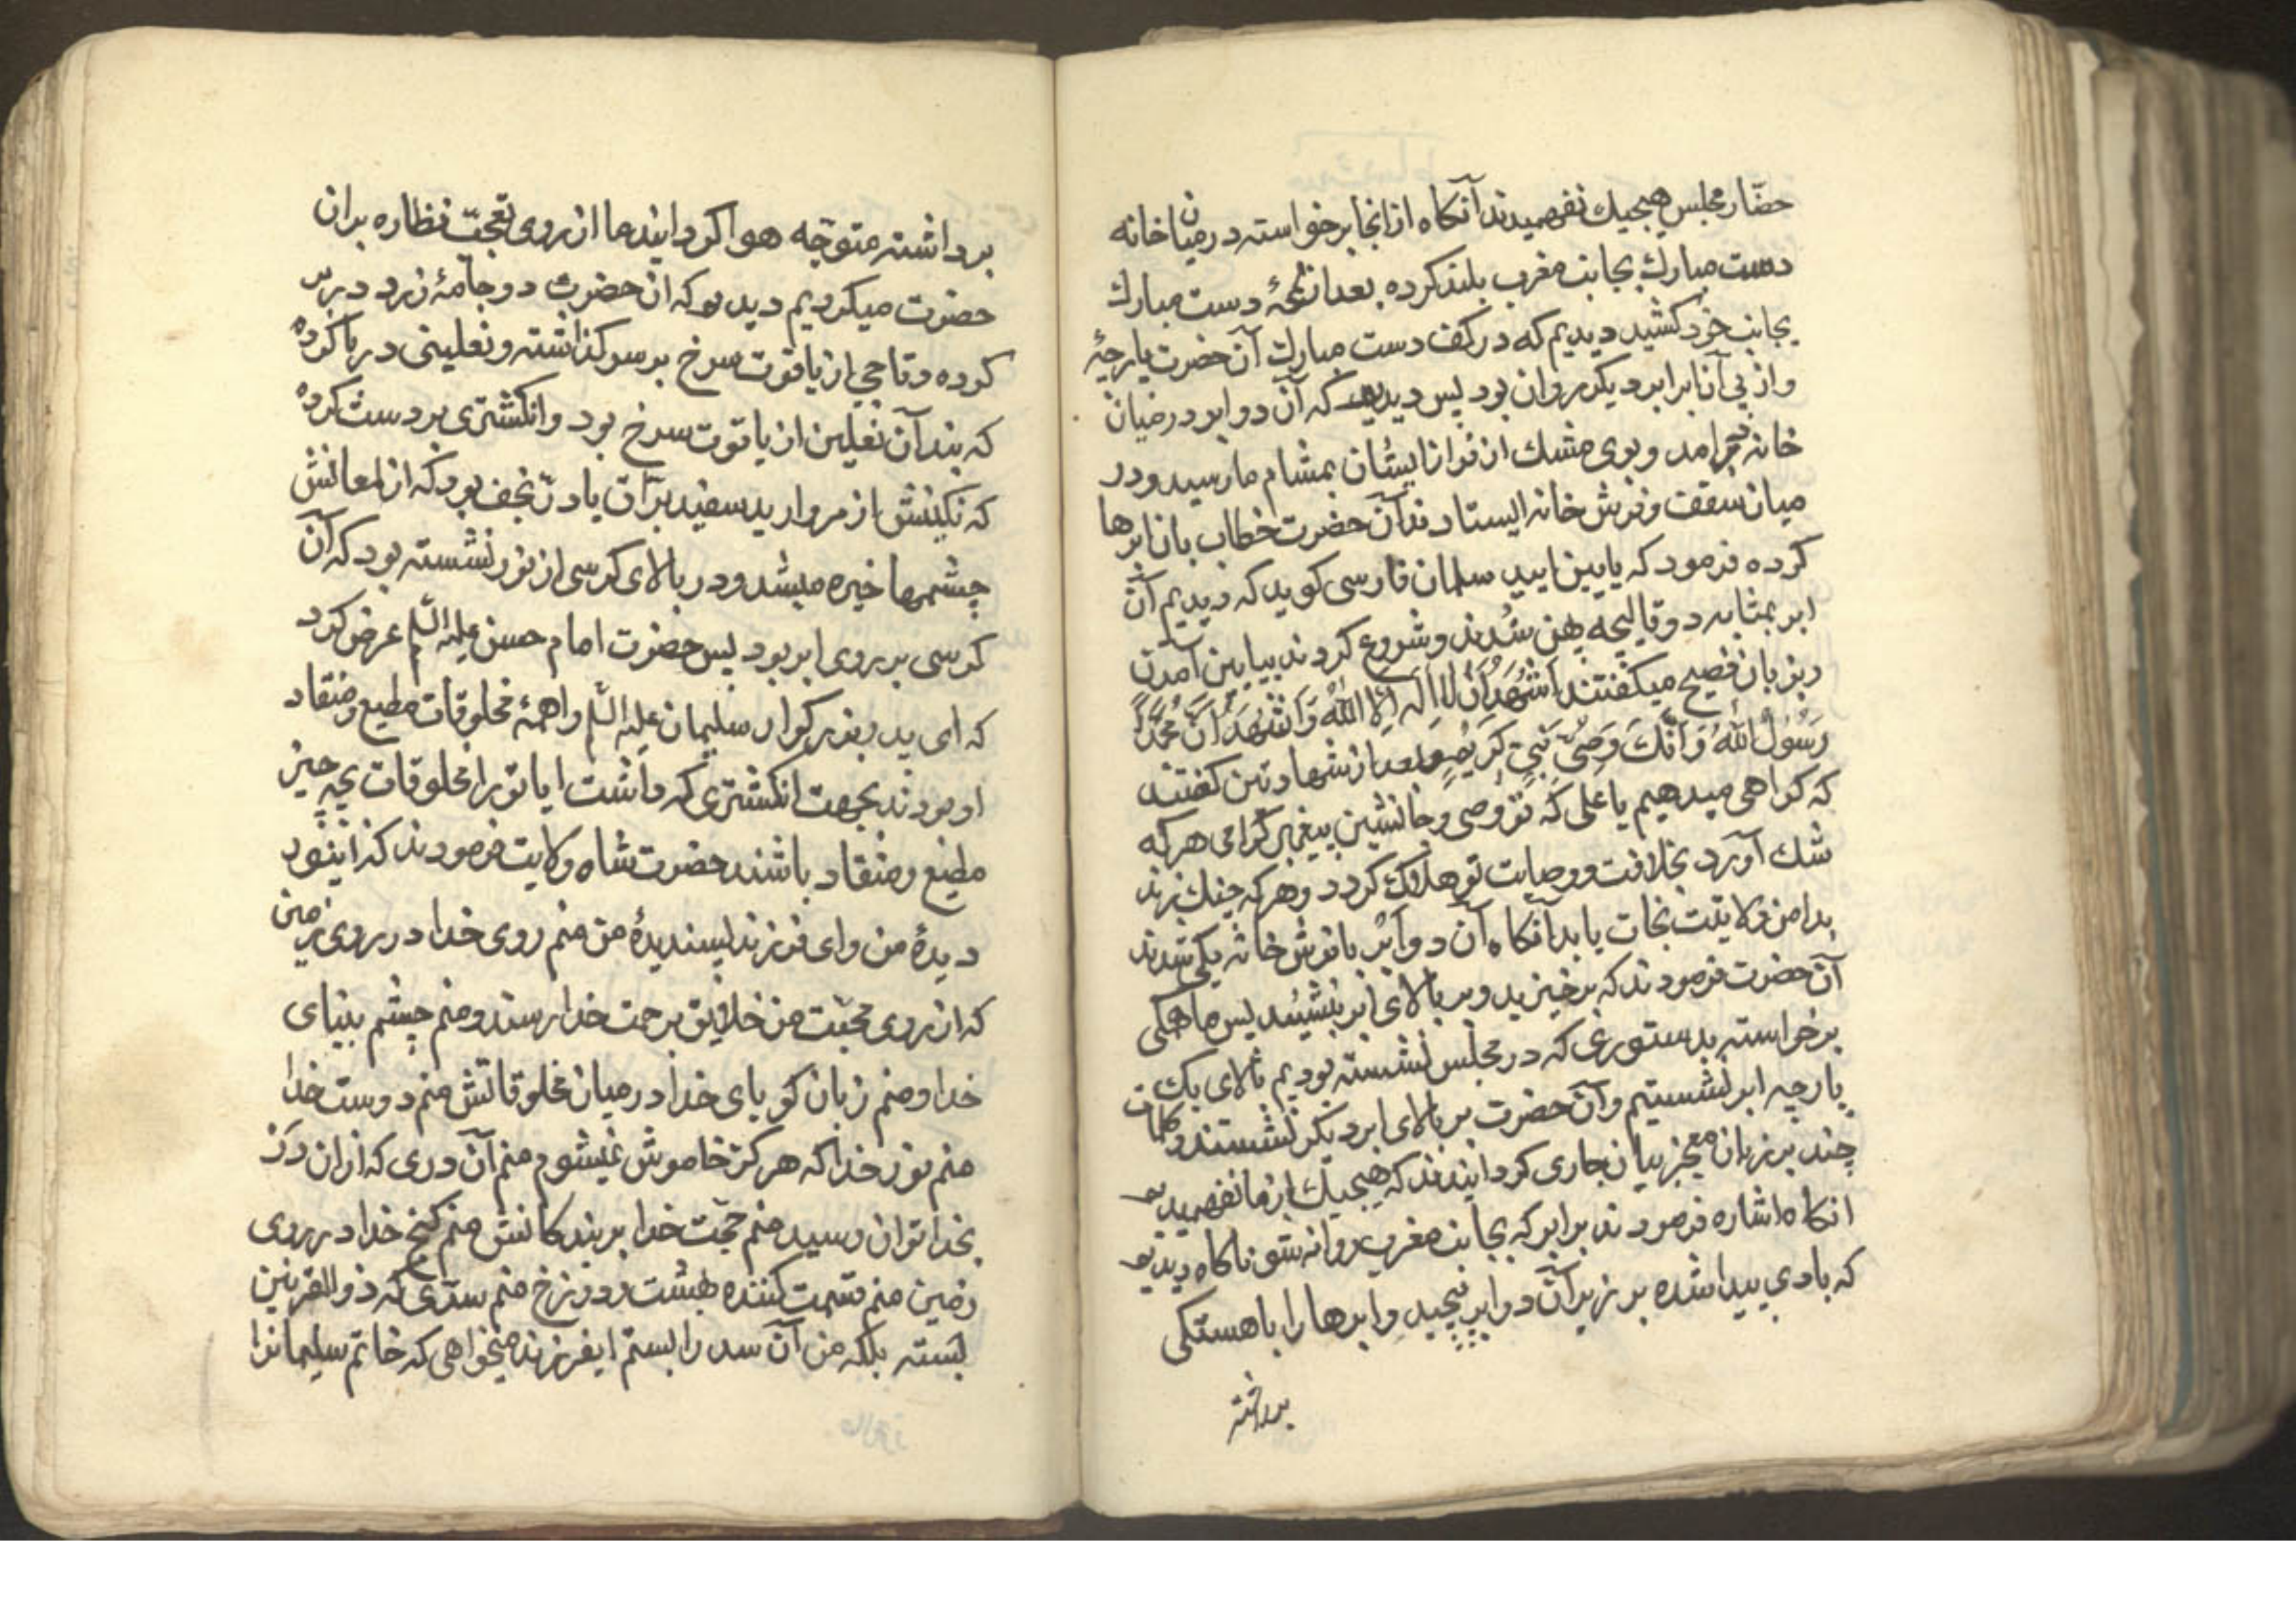 حضّار مجلس هیچیك نفهمیدند آنكاه از انجا برخواسته درمیان خانه
دست مبارك بجانب مغرب بلند كرده بعد از لمحهٔ دست مبارك
بجانب خود كشید دیدیم كه در كف دست مبارك آن حضرت پارچهٔ
واز پی آن ابر ابر دیكر روان بود پس دیدیم كه آن دو ابر درمیان
خانه در امد و بوی مشك از ایشان بمشام ما رسید و در
میان سقف و فرش خانه ایستادند آن حضرت خطاب بان ابرها
كرده فرمود كه پایین ایید سلمان فارسی كوید كه دیدیم آن
ابر بمثابه دو قالیچه پهن شدند و شروع كردند بپایین آمدن
وبزبان فصیح میكفتند اَشْهَدُ اَنْ لا اِلهَ اِلّا اللّهُ وَ اَشْهَدُ اَنَّ مُحَمَّداً
رَسُولُ اللّهُ وَ اَنَّكَ وَصِیُّ نَبِیٍّ كَرِیمٍ و بعد از شهادتین كفتند
كه كواهی میدهیم یا علی كه تو وصی و جانشین پیغمبر كرامی هر كه
شك آورد بخلافت و وصایت تو هلاك كردد و هر كه چنك زند
بدامن ولایتت نجات یابد آنكاه آن دو ابر با فرش خانه یكی شدند
آن حضرت فرمودند كه برخیزید و بر بالای ابر بنشینید پس ما همكی
برخواسته بدستوری كه در مجلس نشسته بودیم بالای یك
پارچه ابر نشستیم و آن حضرت بر بالای ابر دیكر نشستند و كلمات
چند بر زبان معجز بیان جاری كردانیدند كه هیچیك از ما نفهمیدیم
انكاه اشاره فرمودند برابر كه بجانب مغرب روانه شو ناكاه دیدیم
كه بادی پیدا شده بر زیر آن دو ابر پیچید و ابرها را باهستكی
برداشته
برداشته متوجّه هوا كردانید ما از روی تعجّب نظاره بران
حضرت میكردیم دیدیم كه ان حضرت دو جامهٔ زرد دربر
كرده و تاجی از یاقوت سرخ بر سر كذاشته و نعلینی در پا كرده
كه بند آن نعلین از یاقوت سرخ بود و انكشتری بر دست كرده
كه نكینش از مروارید سفید برّاق یا درّ نجف بود كه از لمعانش
چشمها خیره میشد و در بالای كرسی از نور نشسته بود كه آن
كرسی بر روی ابر بود پس حضرت امام حسن علیه السّلم عرض كرد
كه ای پدر بزركوار سلیمان علیه السّلم را همهٔ مخلوقات مطیع و منقاد
او بودند بجهت انكشتری كه داشت ایا تو را مخلوقات بچه چیز
مطیع و منقاد باشند حضرت شاه ولایت فرمودند كه اینور
دیدهٔ من وای فرزند پسندیدهٔ من منم روی خدا در روی زمین
كه از روی محبّت من خلایق برحمت خدا رسند و منم چشم بینای
خدا و منم زبان كویای خدا در میان مخلوقاتش منم دوست خدا
منم نور خدا كه هركز خاموش نمیشوم منم آن دری كه از ان در
بخدا توان رسید منم حجّت خدا بر بندكانش منم كنج خدا در روی
زمین منم قسمت كننده بهشت و دوزخ منم سدّی كه ذوالقرنین
بسته بلكه من آن سد را بستم ایفرزند میخواهی كه خاتم سلیمانرا